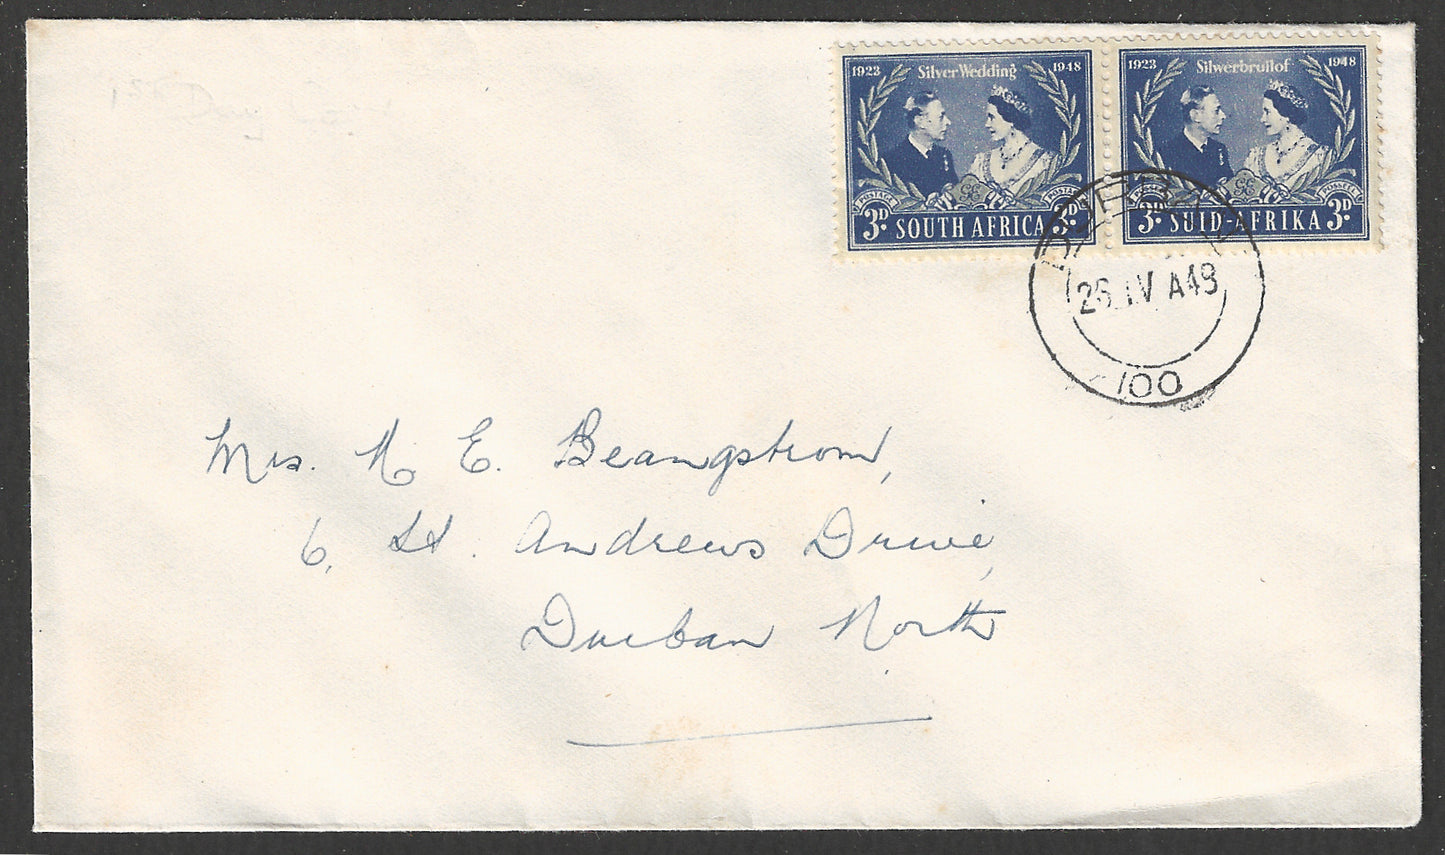 1st Day
1923 Silver Wedding 1948
POSTAGE POSTAGE
3D SOUTH AFRICA 3D
1923 Silwerbruilof 1948
POSSEËL POSSEËL
3D SUID-AFRIKA 3D
DURBAN
26 IV A48
100
Mrs. N E. Beangstrom,
6, St. Andrews Drive,
Durban North